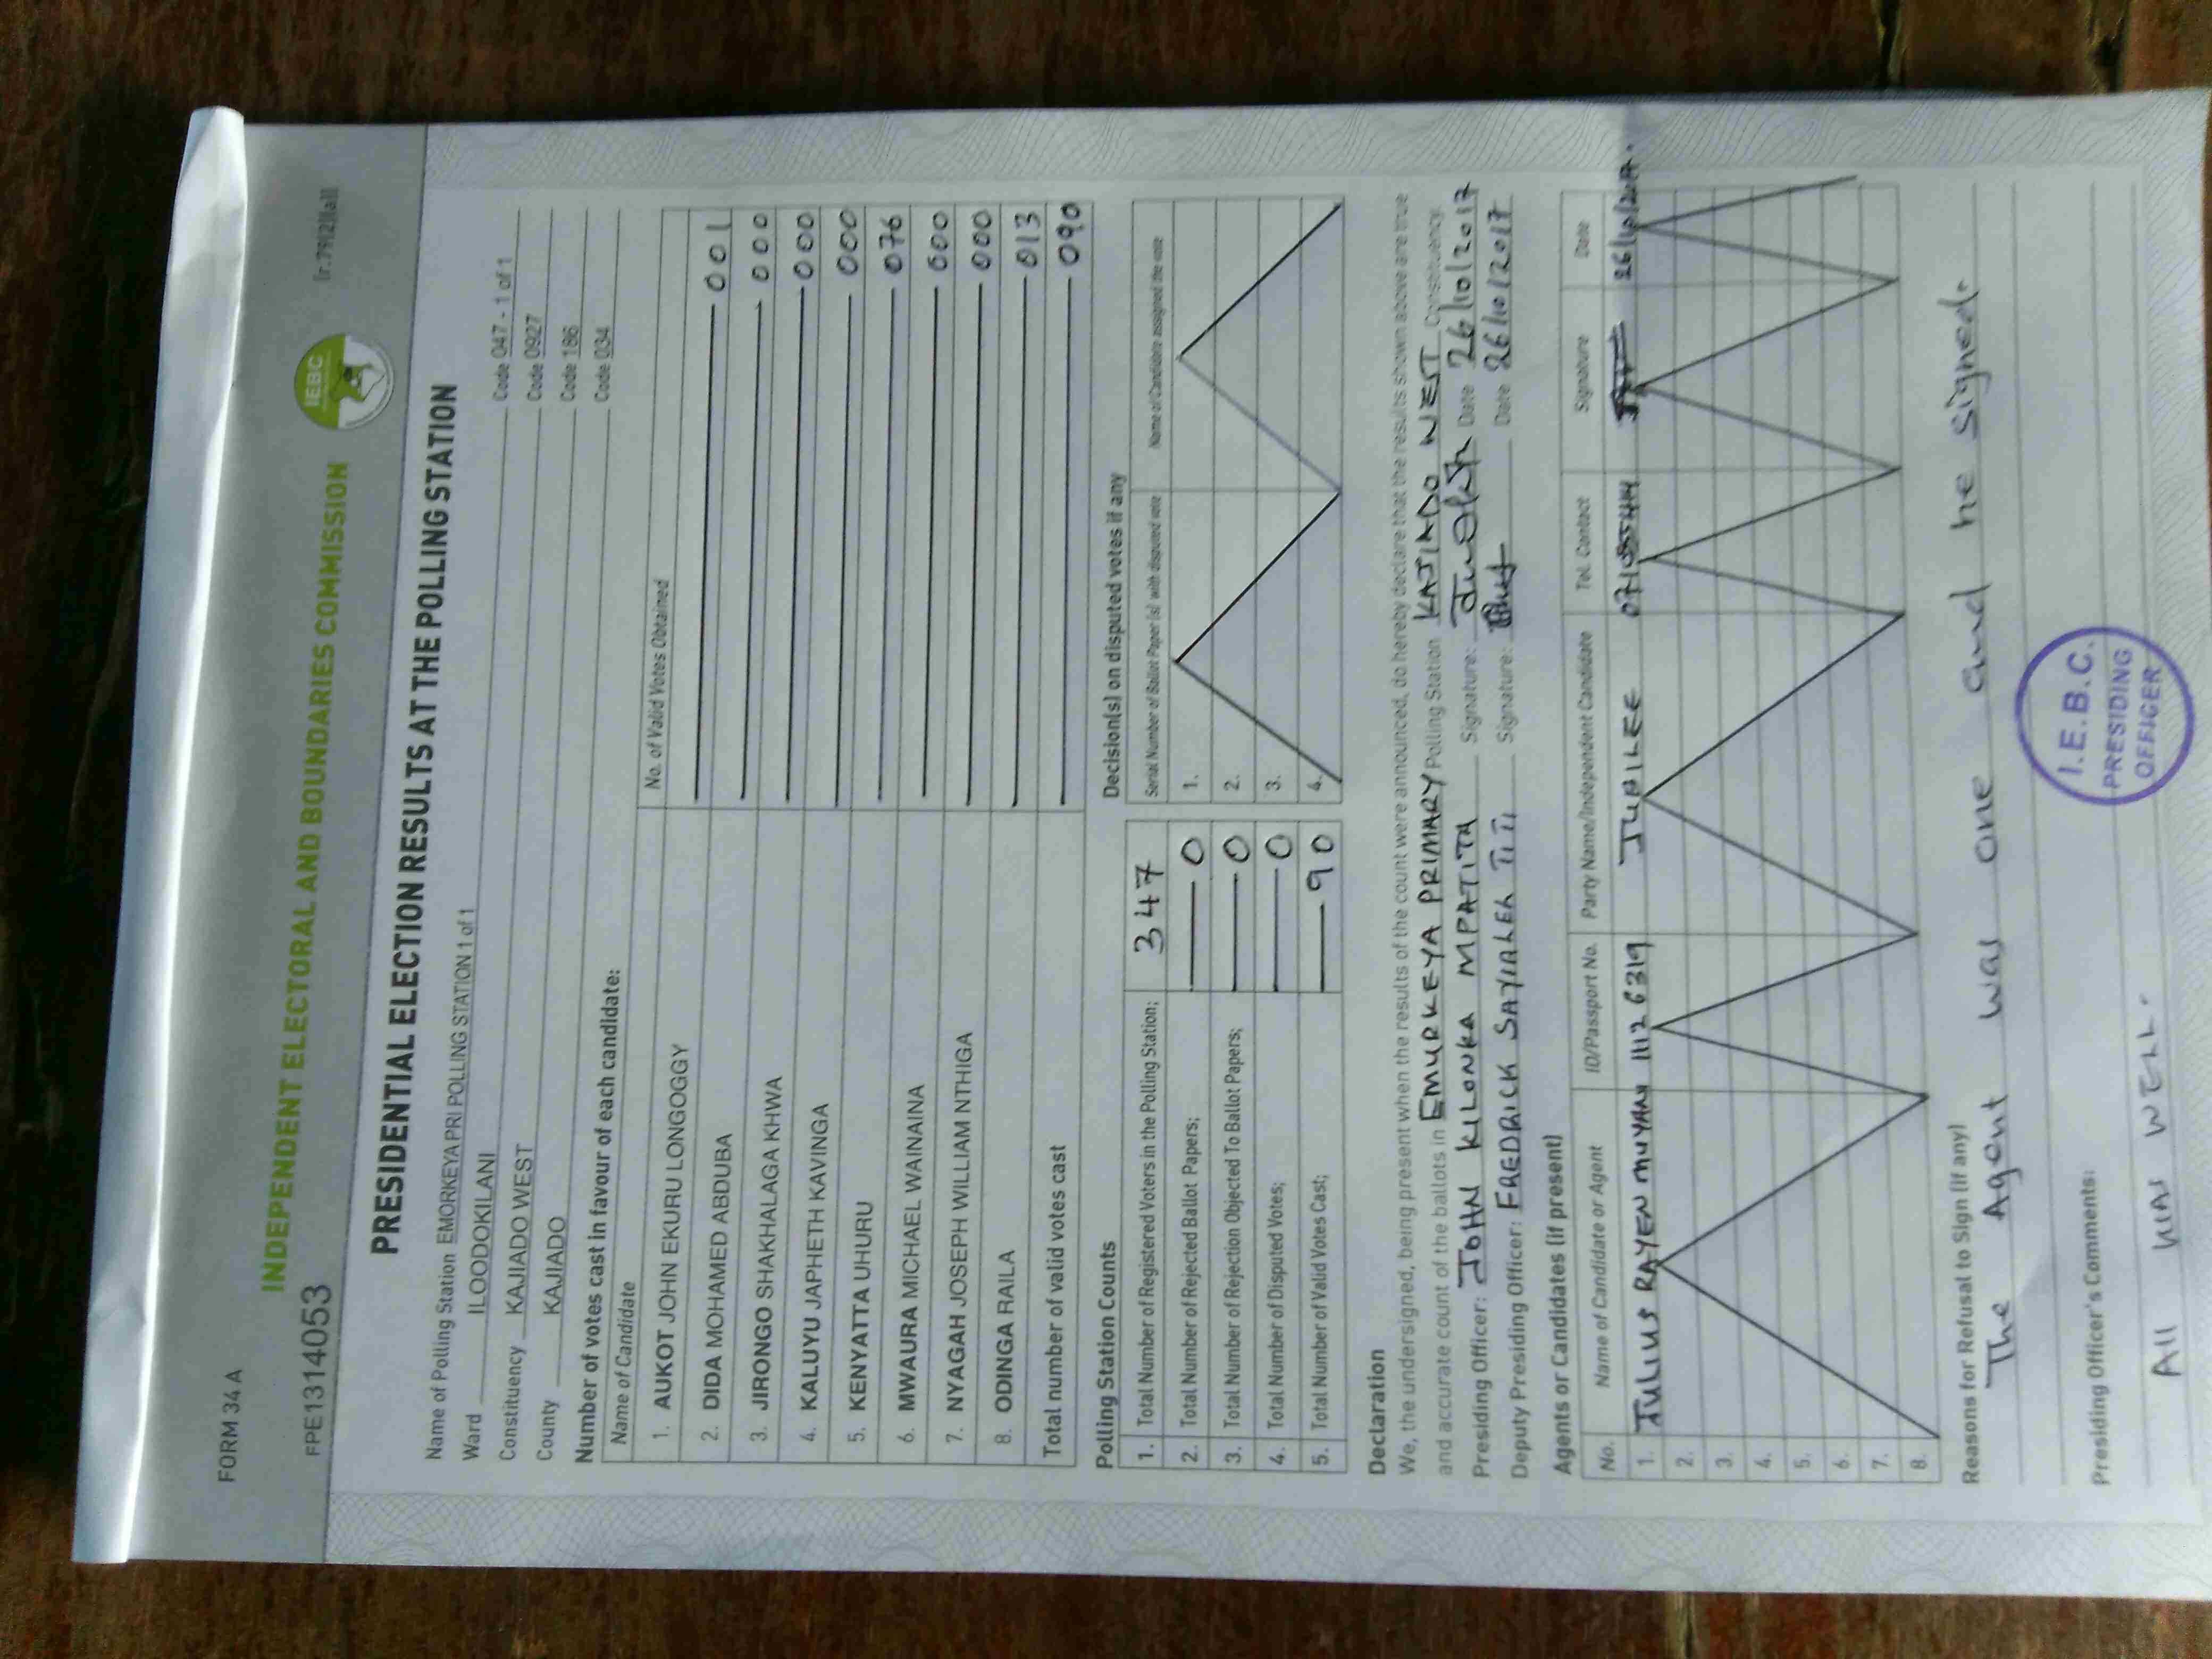 FORM 34 A
FPE1314053
INDEPENDENT ELECTORAL AND BOUNDARIES COMMISSION
IEBC
(r.79(2)(a))
PRESIDENTIAL ELECTION RESULTS AT THE POLLING STATION
Name of Polling Station EMORKEYA PRI POLLING STATION 1 of 1 Code 047 - 1 of 1
Ward ILOODOKILANI Code 0927
Constituency KAJIADO WEST Code 186
County KAJIADO Code 034
Number of votes cast in favour of each candidate:
Name of Candidate No. of Valid Votes Obtained
1. AUKOT JOHN EKURU LONGOGGY 001
2. DIDA MOHAMED ABDUBA 000
3. JIRONGO SHAKHALAGA KHWA 000
4. KALUYU JAPHETH KAVINGA 000
5. KENYATTA UHURU 076
6. MWAURA MICHAEL WAINAINA 000
7. NYAGAH JOSEPH WILLIAM NTHIGA 000
8. ODINGA RAILA 013
Total number of valid votes cast 090
Polling Station Counts
1. Total Number of Registered Voters in the Polling Station; 347
2. Total Number of Rejected Ballot Papers; 0
3. Total Number of Rejection Objected To Ballot Papers; 0
4. Total Number of Disputed Votes; 0
5. Total Number of Valid Votes Cast; 90
Decision(s) on disputed votes if any
Serial Number of Ballot Paper (s) with disputed vote Name of Candidate assigned the vote
1.
2.
3.
4.
Declaration
We, the undersigned, being present when the results of the count were announced, do hereby declare that the results shown above are true
and accurate count of the ballots in EMURKEYA PRIMARY Polling Station KAJIADO WEST Constituency.
Presiding Officer: JOHN KILONKA MPATITA Signature: Date 26/10/2017
Deputy Presiding Officer: FREDRICK SAYIALEL TITI Signature: Date 26/10/2017
Agents or Candidates (if present)
No. Name of Candidate or Agent ID/Passport No. Party Name/Independent Candidate Tel. Contact Signature Date
1. JULIUS RAYEN MUYAN 11126319 JUBILEE 26/10/2017.
2.
3.
4.
5.
6.
7.
8.
Reasons for Refusal to Sign (if any)
The Agent was one and he signed.
Presiding Officer's Comments:
All WAS WELL.
I.E.B.C.
PRESIDING
OFFICER